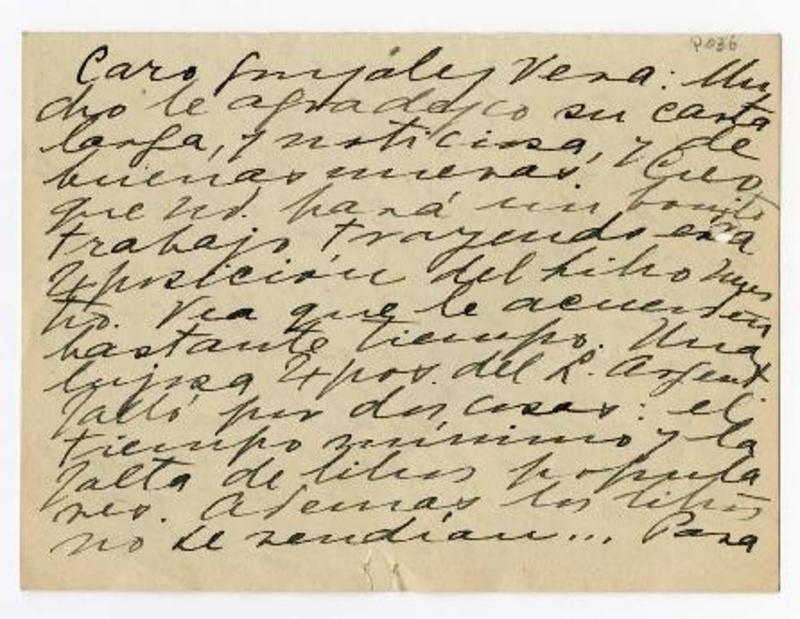 P036
Caro González Vera: Mu
cho le agradezco su carta
larga, y noticiosa, y de
buenas nuevas. Creo
que Ud. hará un bonito
trabajo trayendo esa
Exposición del libro nues
tro. Vea que le acuerden
bastante tiempo. Una
lujosa Expos. del L. Argent.
falló por dos cosas: el
tiempo mínimo y la
falta de libros popula
res. Ademas los libros
no se vendían... Para